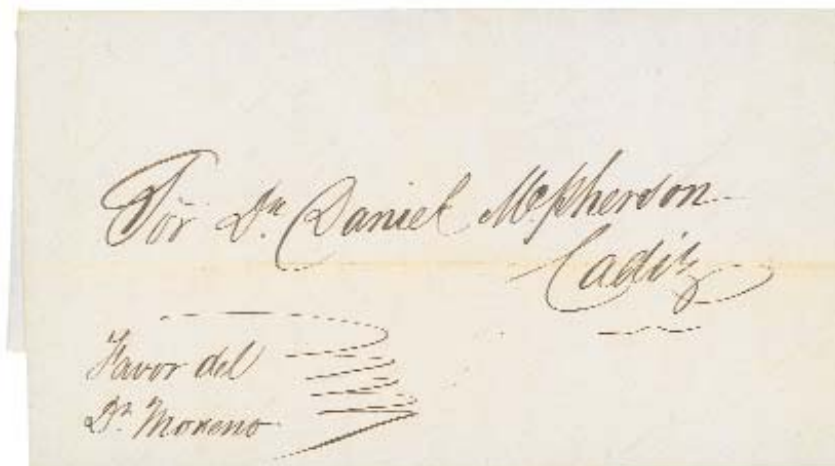 Sör Dn. Daniel Mcpherson
Cadiz
Favor del
Dr. Moreno